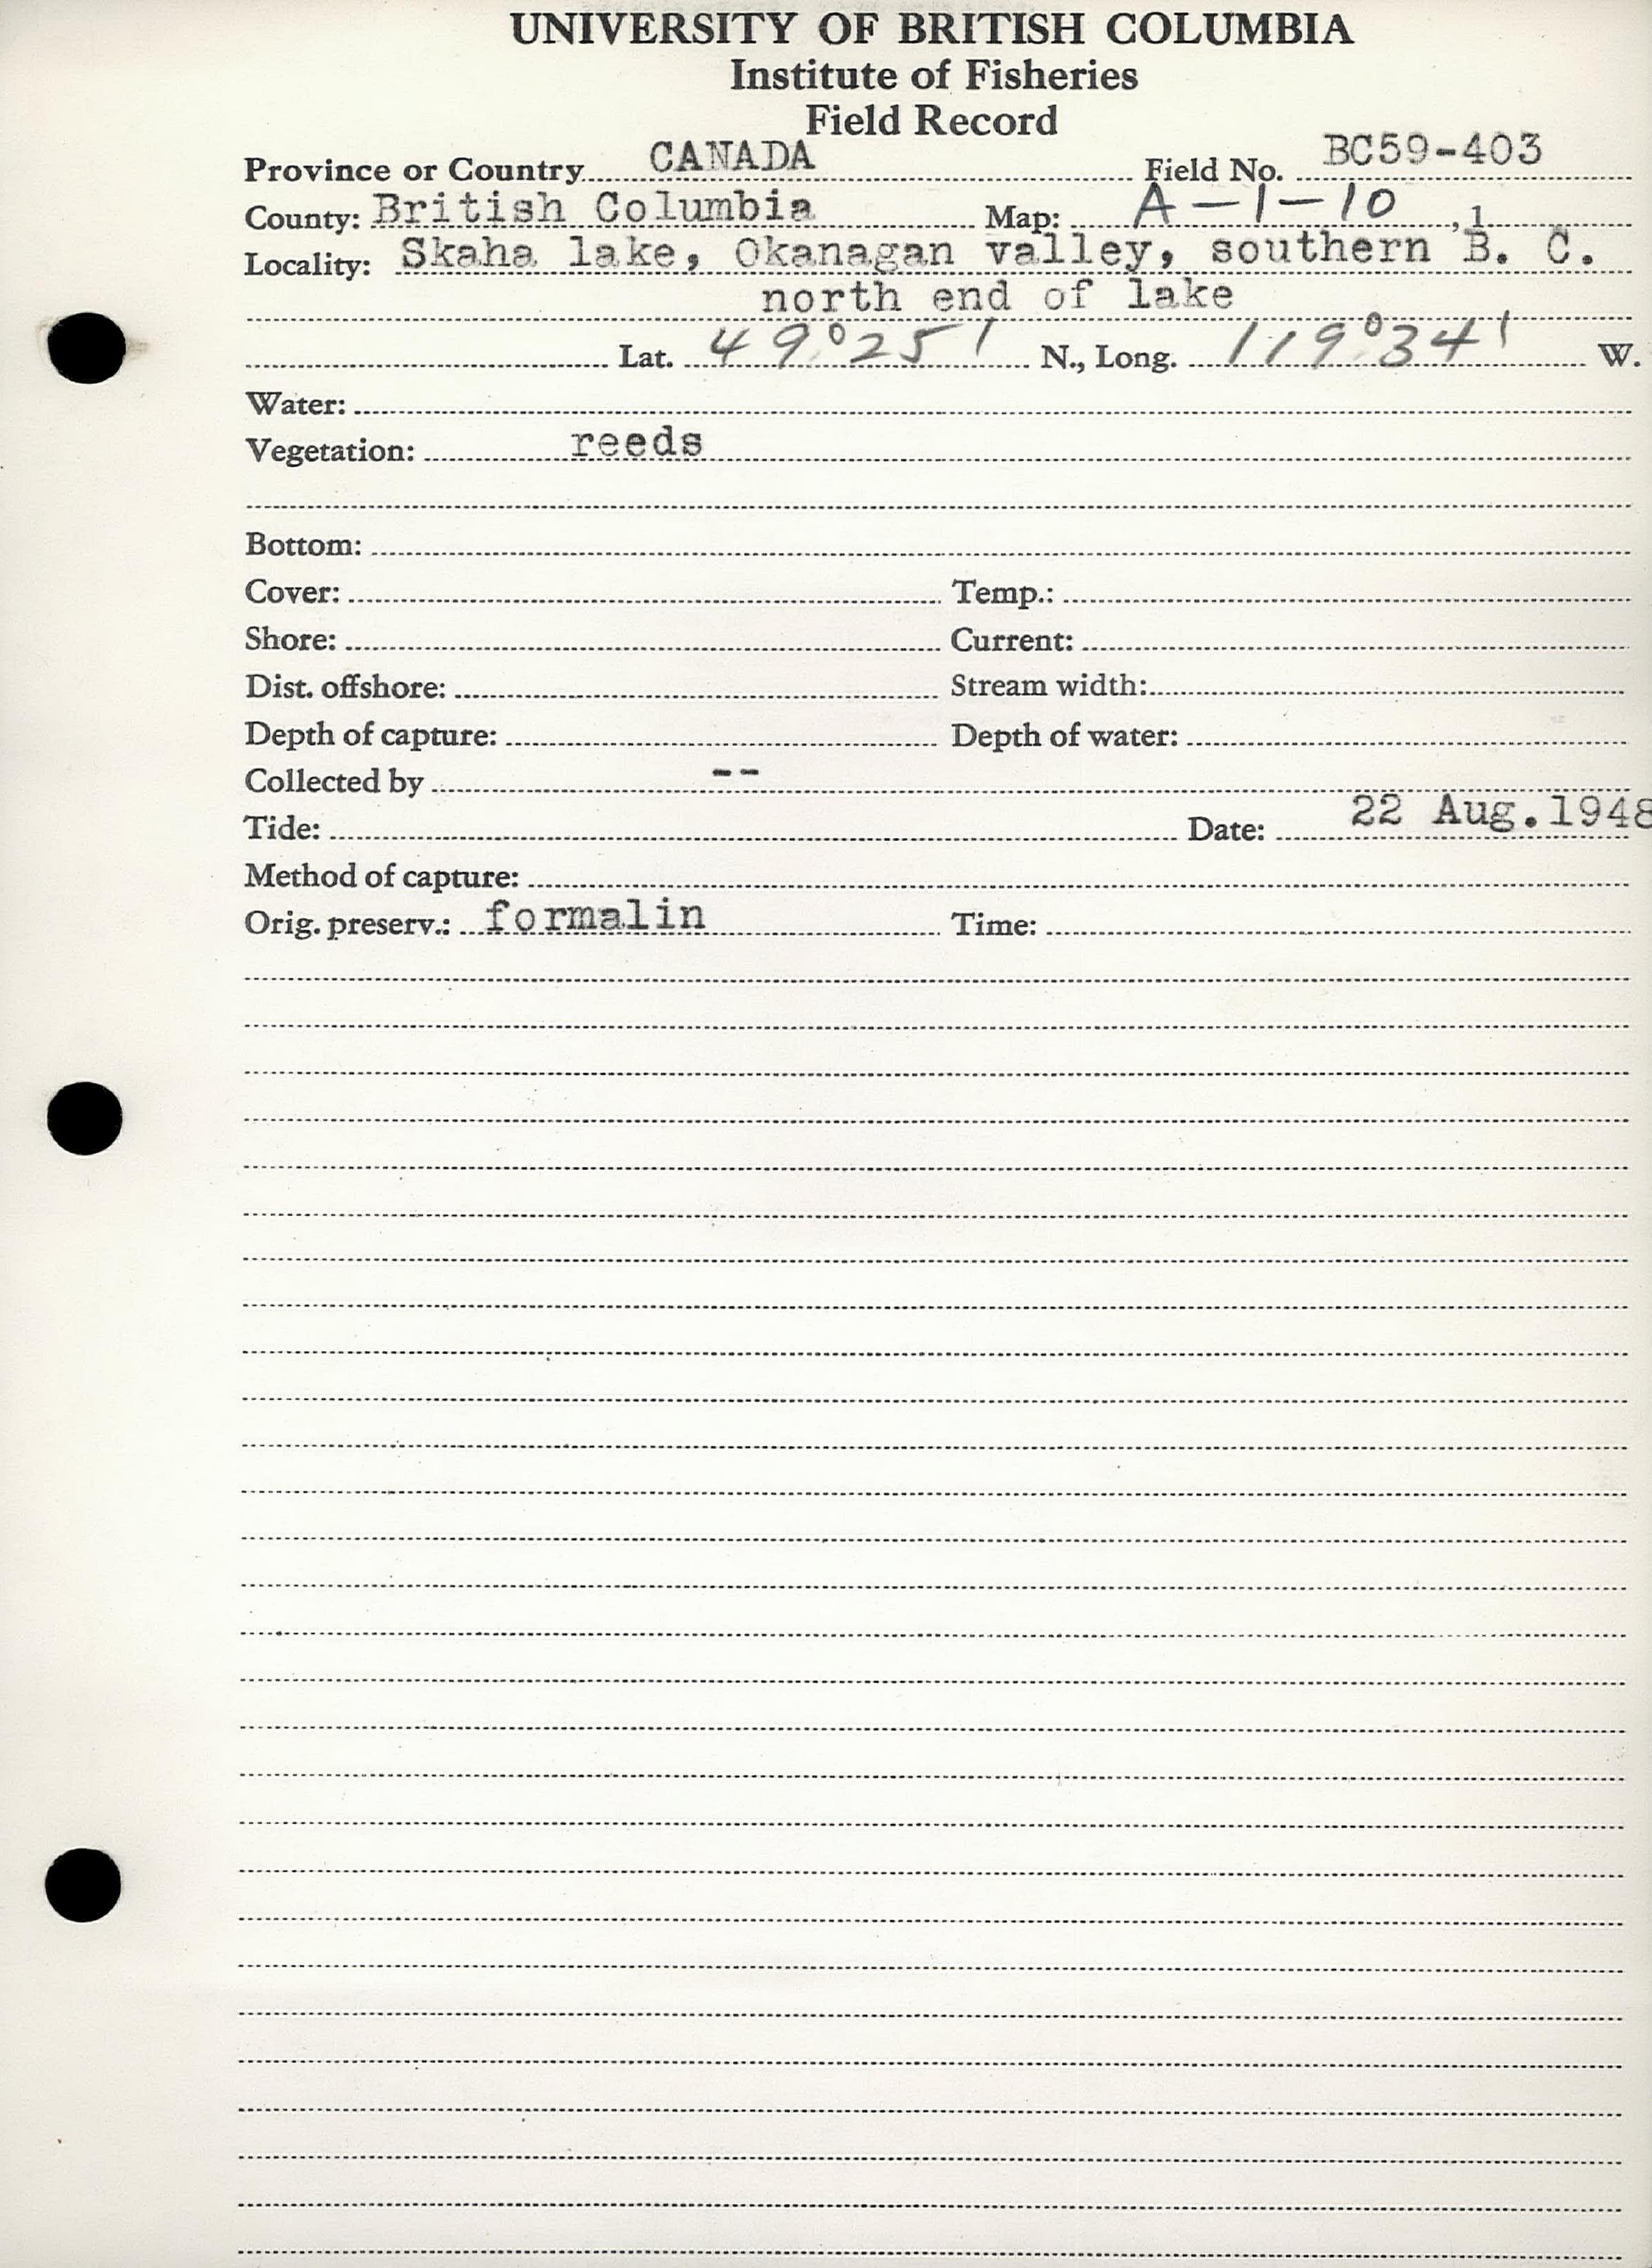 UNIVERSITY OF BRITISH COLUMBIA
Institute of Fisheries
Field Record
Province or Country CANADA Field No. BC59-403
County: British Columbia Map: A-1-10 , 1
Locality: Skaha lake, Okanagan valley, southern B. C.
north end of lake
Lat. 49°25' N., Long. 119°34' W.
Water:
Vegetation: reeds
Bottom:
Cover: Temp.:
Shore: Current:
Dist. offshore: Stream width:
Depth of capture: Depth of water:
Collected by --
Tide: Date: 22 Aug.1948
Method of capture:
Orig. preserv.: formalin Time: